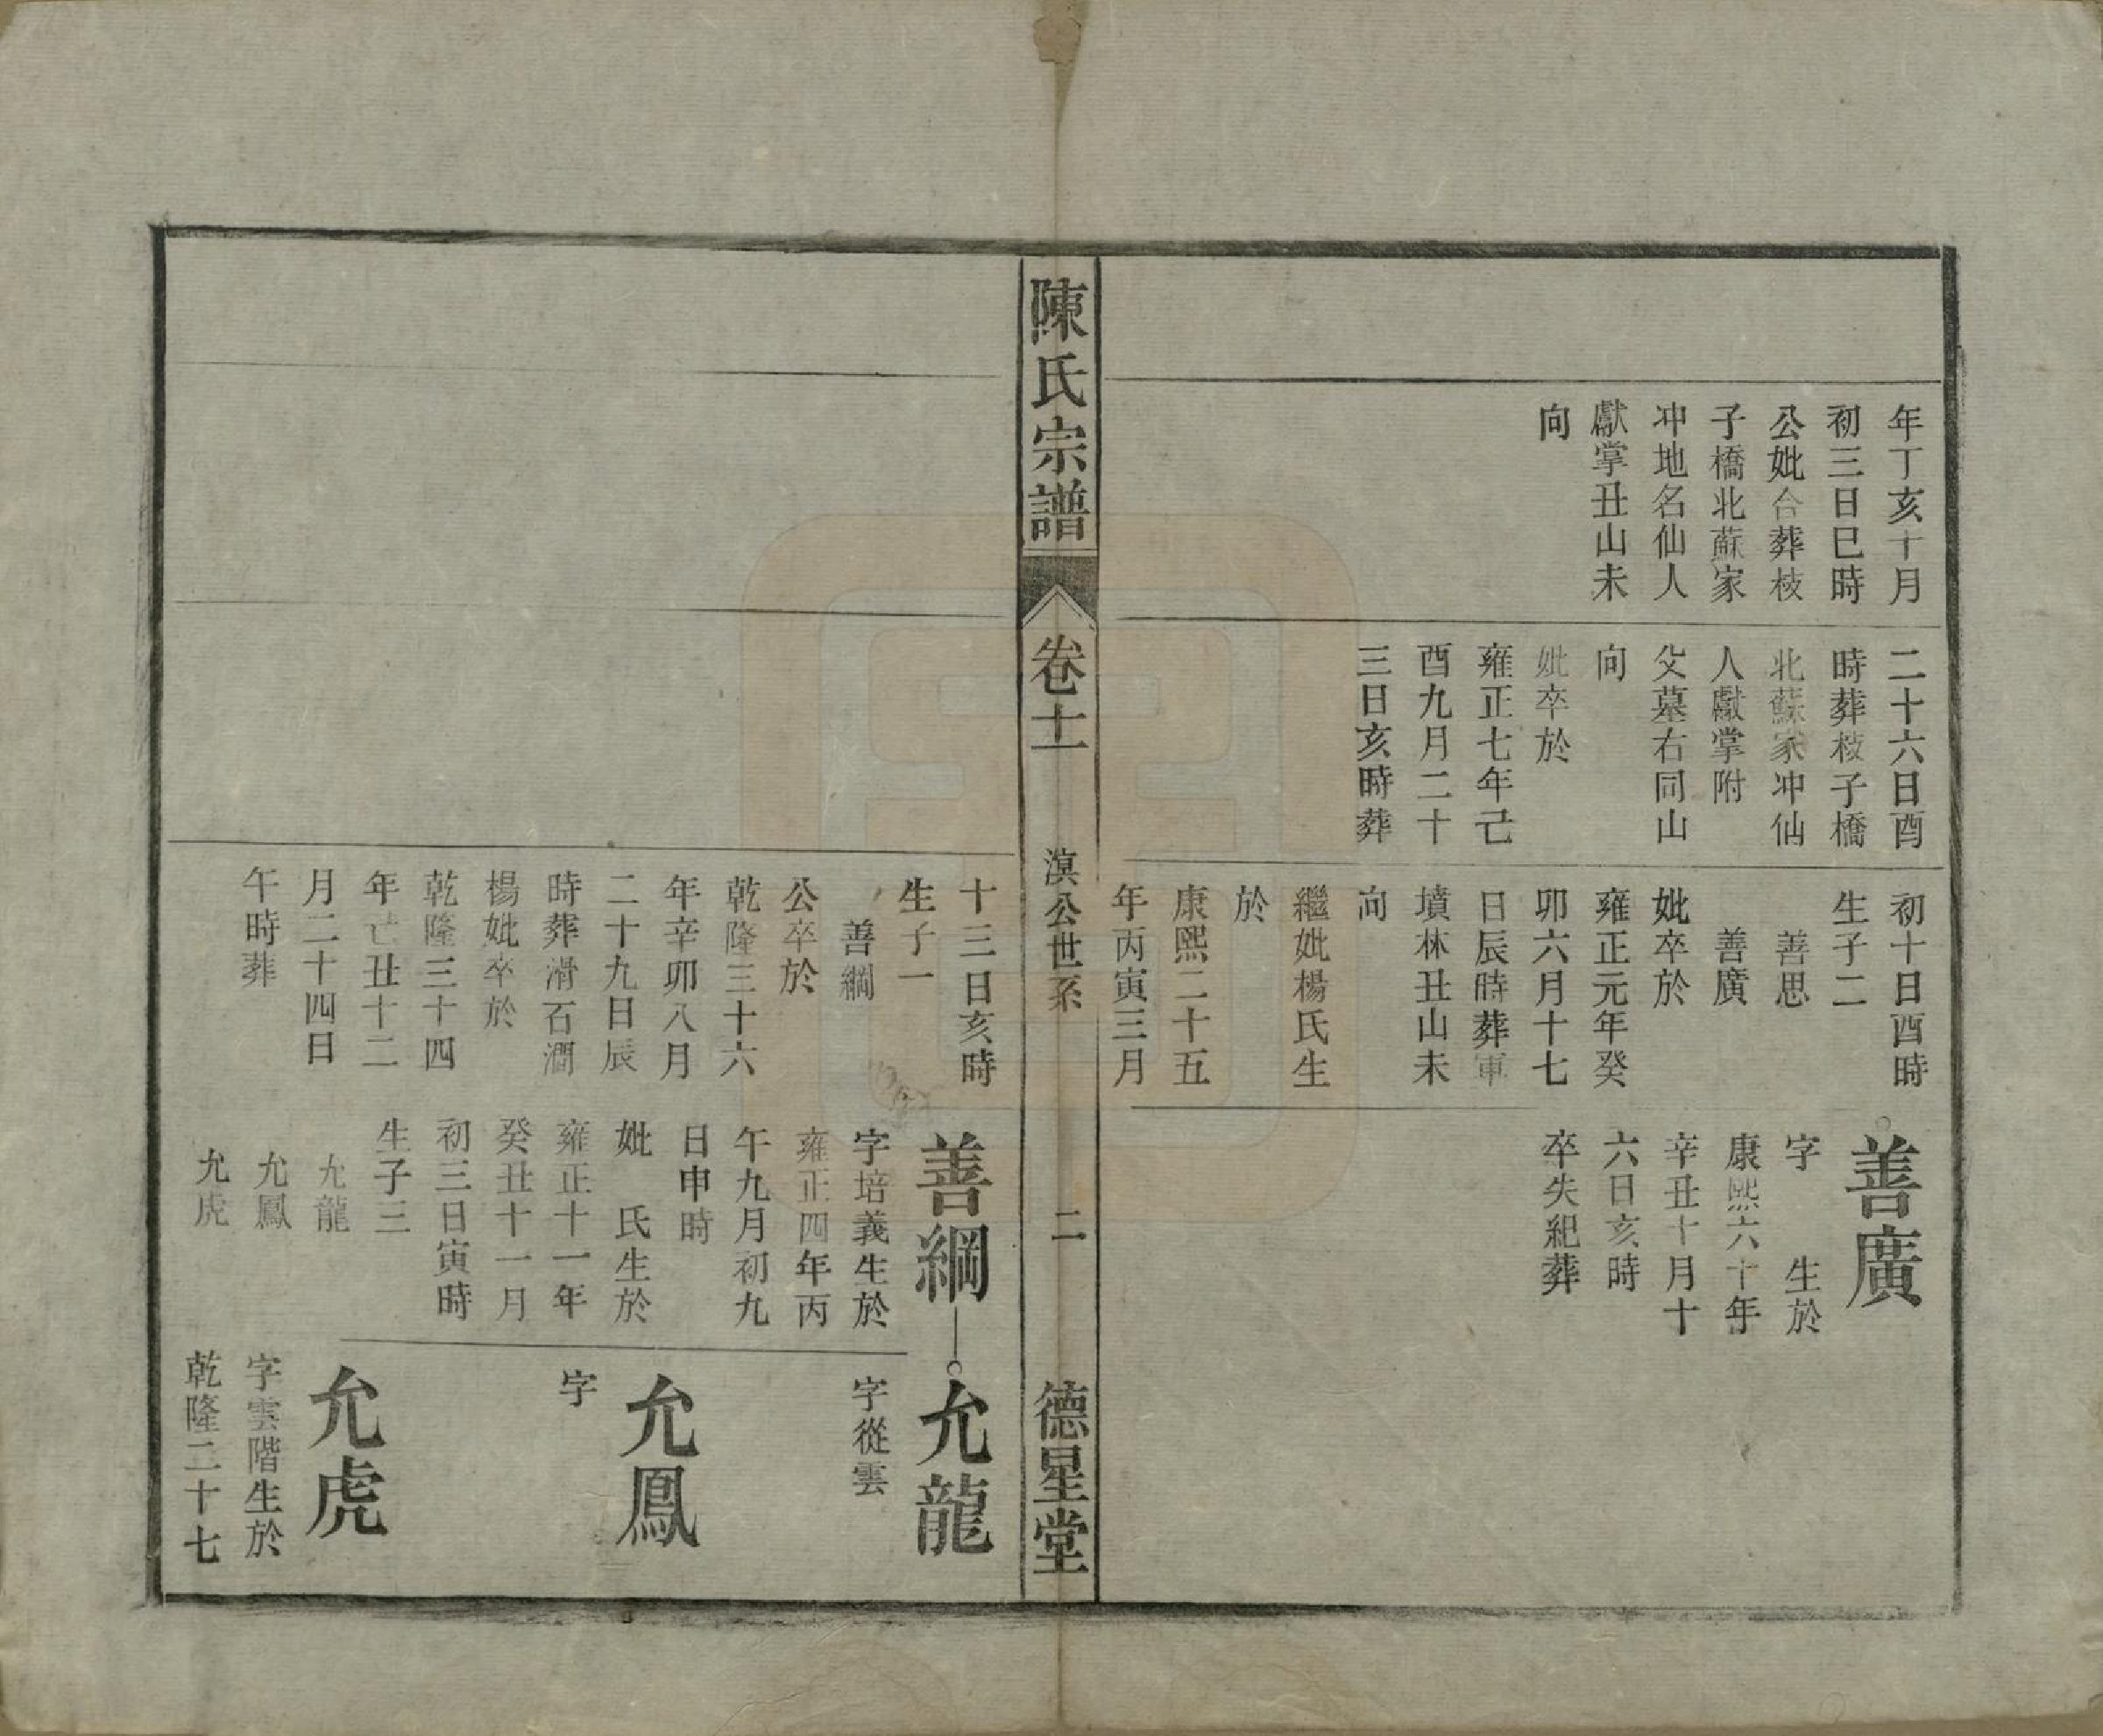 年丁亥十月
初三日巳時
公妣合葬枝
子橋北蘇家
冲地名仙人
獻掌丑山未
向
二十六日酉
時葬枝子橋
北蘇家冲仙
人獻掌附
父墓右同山
向
妣卒於
雍正七年己
酉九月二十
三日亥時葬
初十日酉時
生子二
善思
善廣
妣卒於
雍正元年癸
卯六月十七
日辰時葬軍
墳林丑山未
向
繼妣楊氏生
於
康熙二十五
年丙寅三月
善廣
字 生於
康熙六十年
辛丑十月十
六日亥時
卒失紀葬
陳氏宗譜
卷十一
淇公世系
二
德星堂
十三日亥時
生子一
善綱
公卒於
乾隆三十六
年辛卯八月
二十九日辰
時葬滑石澗
楊妣卒於
乾隆三十四
年己丑十二
月二十四日
午時葬
善綱
字培義生於
雍正四年丙
午九月初九
日申時
妣 氏生於
雍正十一年
癸丑十一月
初三日寅時
生子三
允龍
允鳳
允虎
允龍
字從雲
允鳳
字
允虎
字雲階生於
乾隆二十七